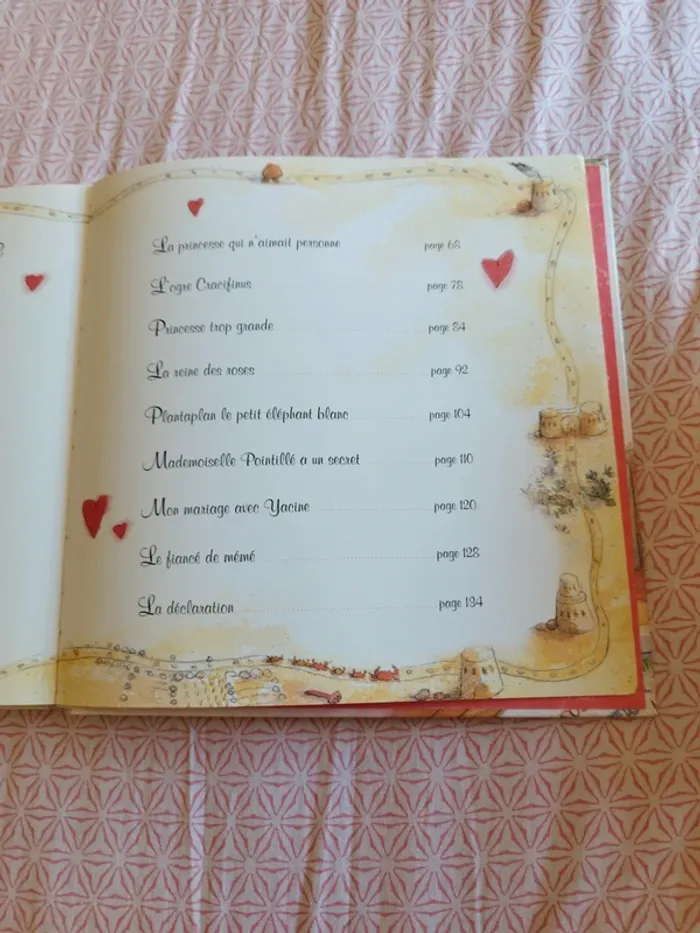 La princesse qui n'aimait personne page 68
L'ogre Cracifinus page 78
Princesse trop grande page 84
La reine des roses page 92
Plantaplan le petit éléphant blanc page 104
Mademoiselle Pointillé a un secret page 110
Mon mariage avec Yacine page 120
Le fiancé de mémé page 128
La déclaration page 134